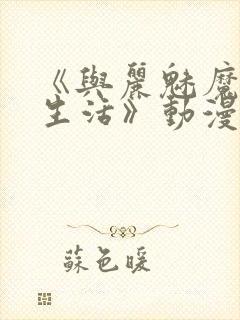 《與麗魅魔
生活》動漫
蘇色暖